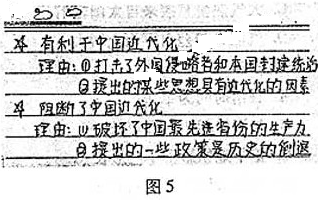 有利于中国近代化
理由:①打击了外国侵略者和本国封建统治
②提出的某些思想具有近代化的因素
阻断了中国近代化
理由:①破坏了中国最先进省份的生产力
②提出的一些政策是历史的倒退
图5